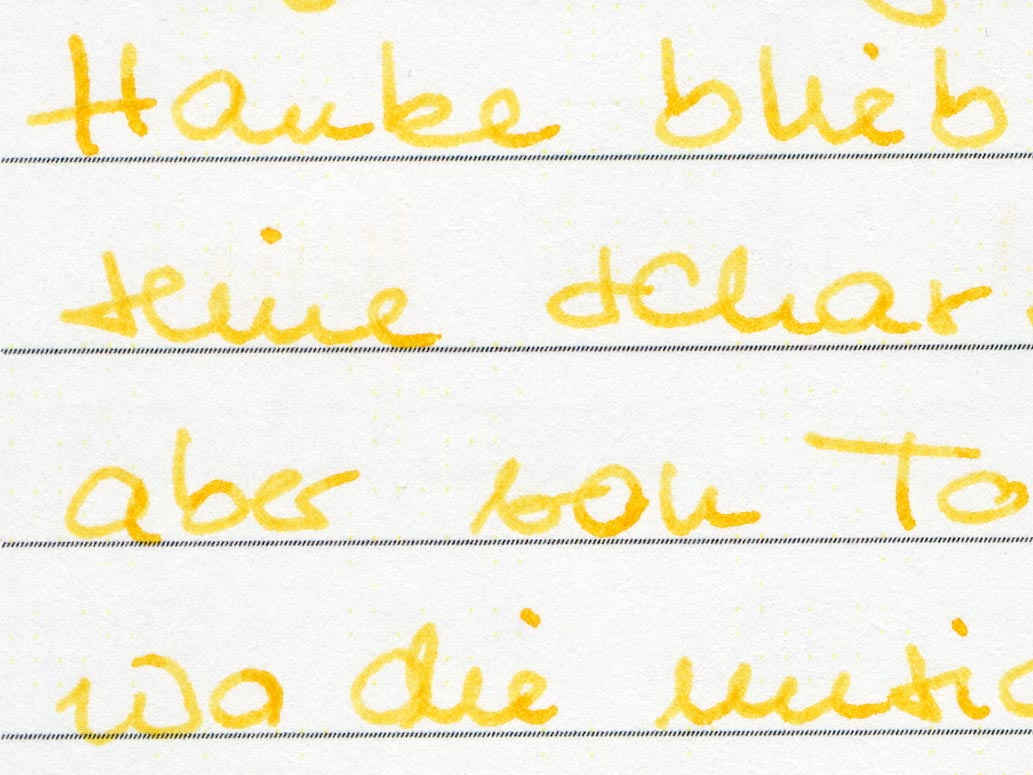 Hauke blieb
seine schar
aber von To
wo die